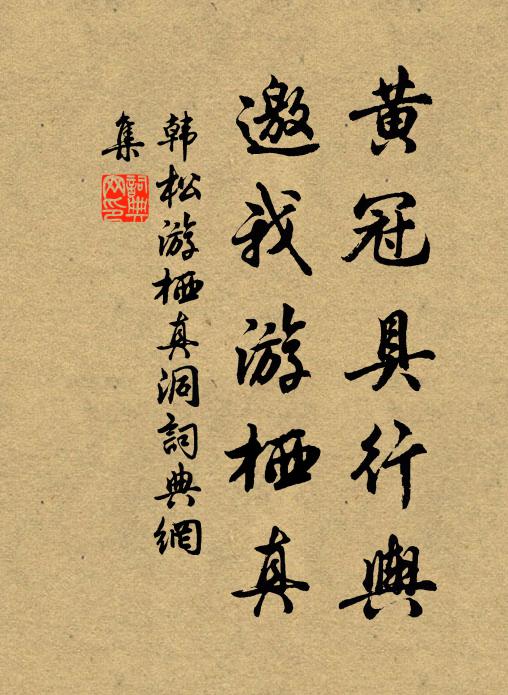 黄冠具行輿
邀我游栖真
韩松游栖真洞詞典網
集
詞典網印